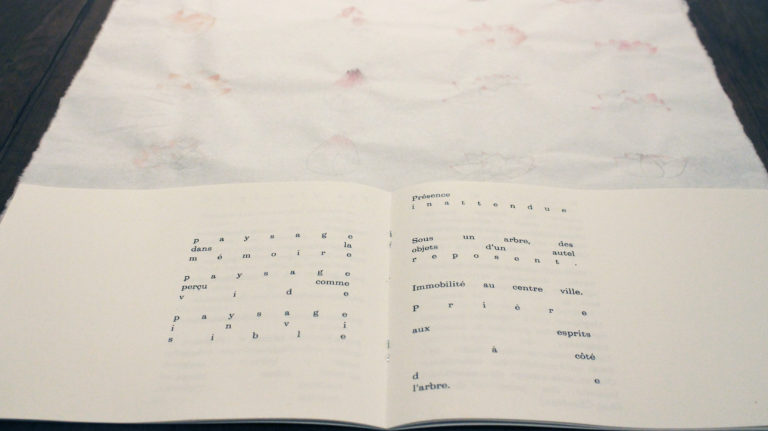 p a y s a g e
dans la
m é m o i r e
p a y s a g e
perçu comme
v i d e
p a y s a g e
i n v i
s i b l e
Présence
i n a t t e n d u e
Sous un arbre, des
objets d'un autel
r e p o s e n t .
Immobilité au centre ville.
P r i è r e
aux esprits
à côté
d e
l'arbre.